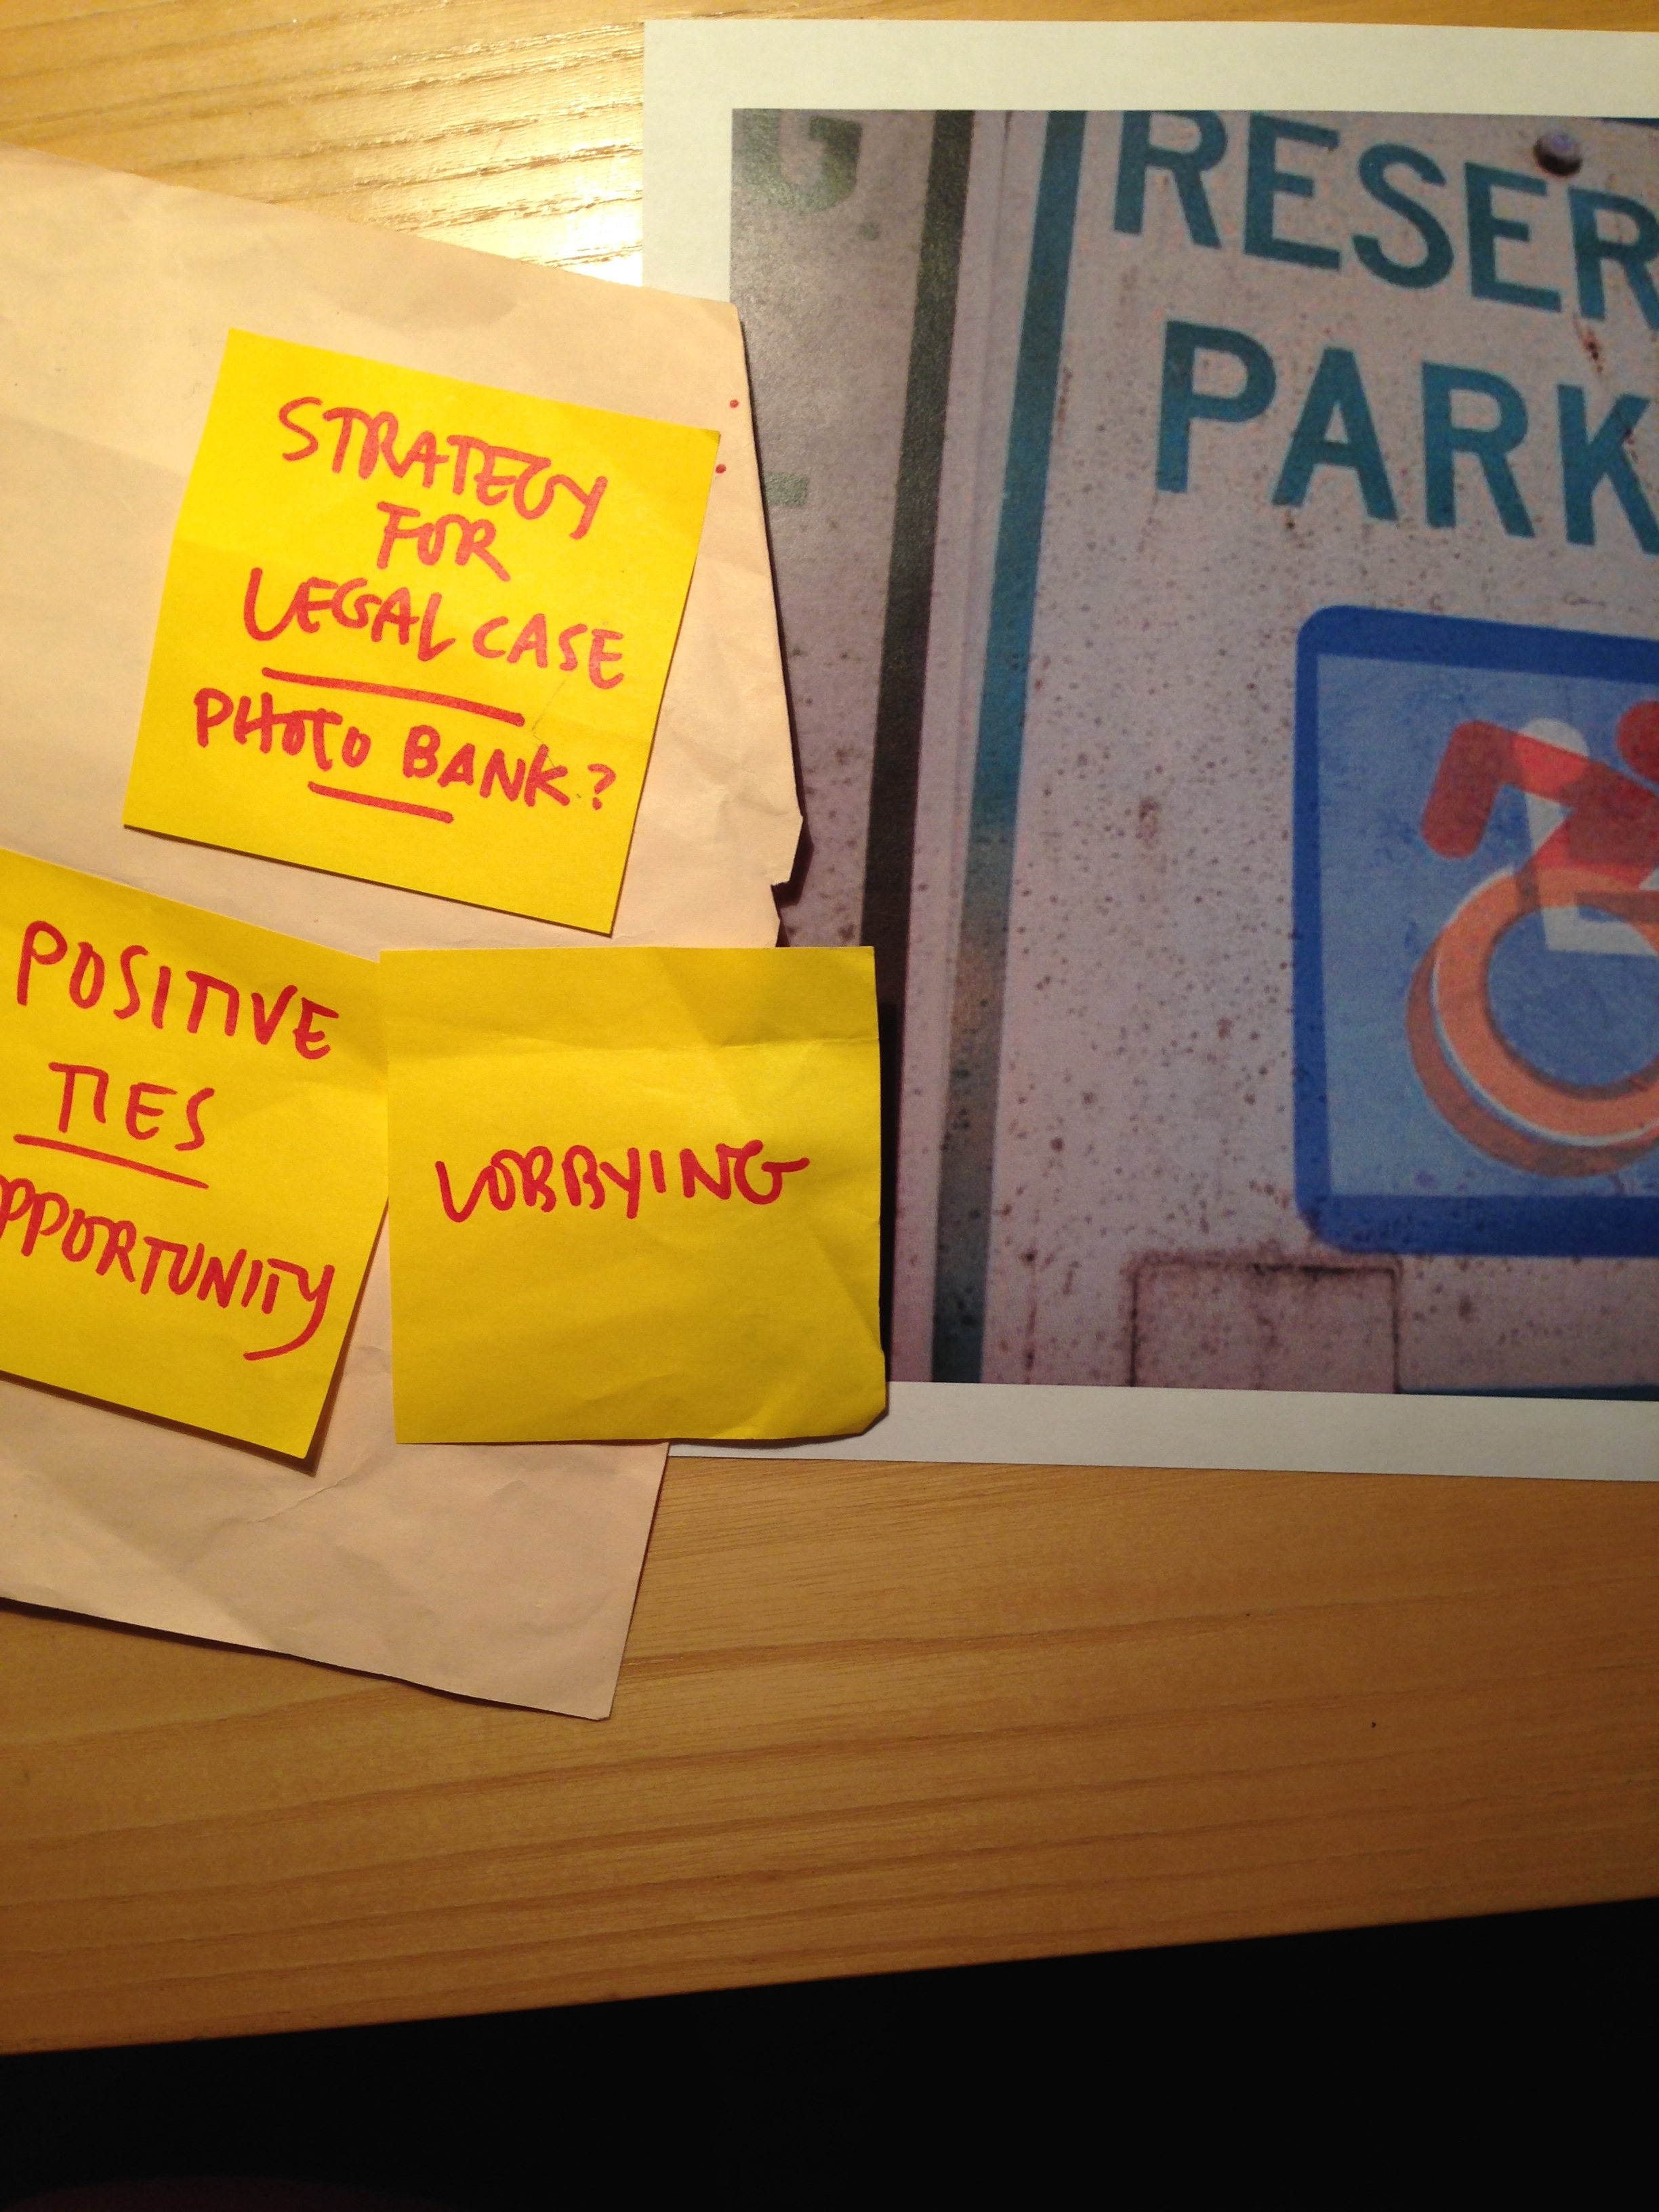 STRATEGY
FOR
LEGAL CASE
PHOTO BANK?
POSITIVE
TIES
OPPORTUNITY
LOBBYING
G.
RESER
PARK